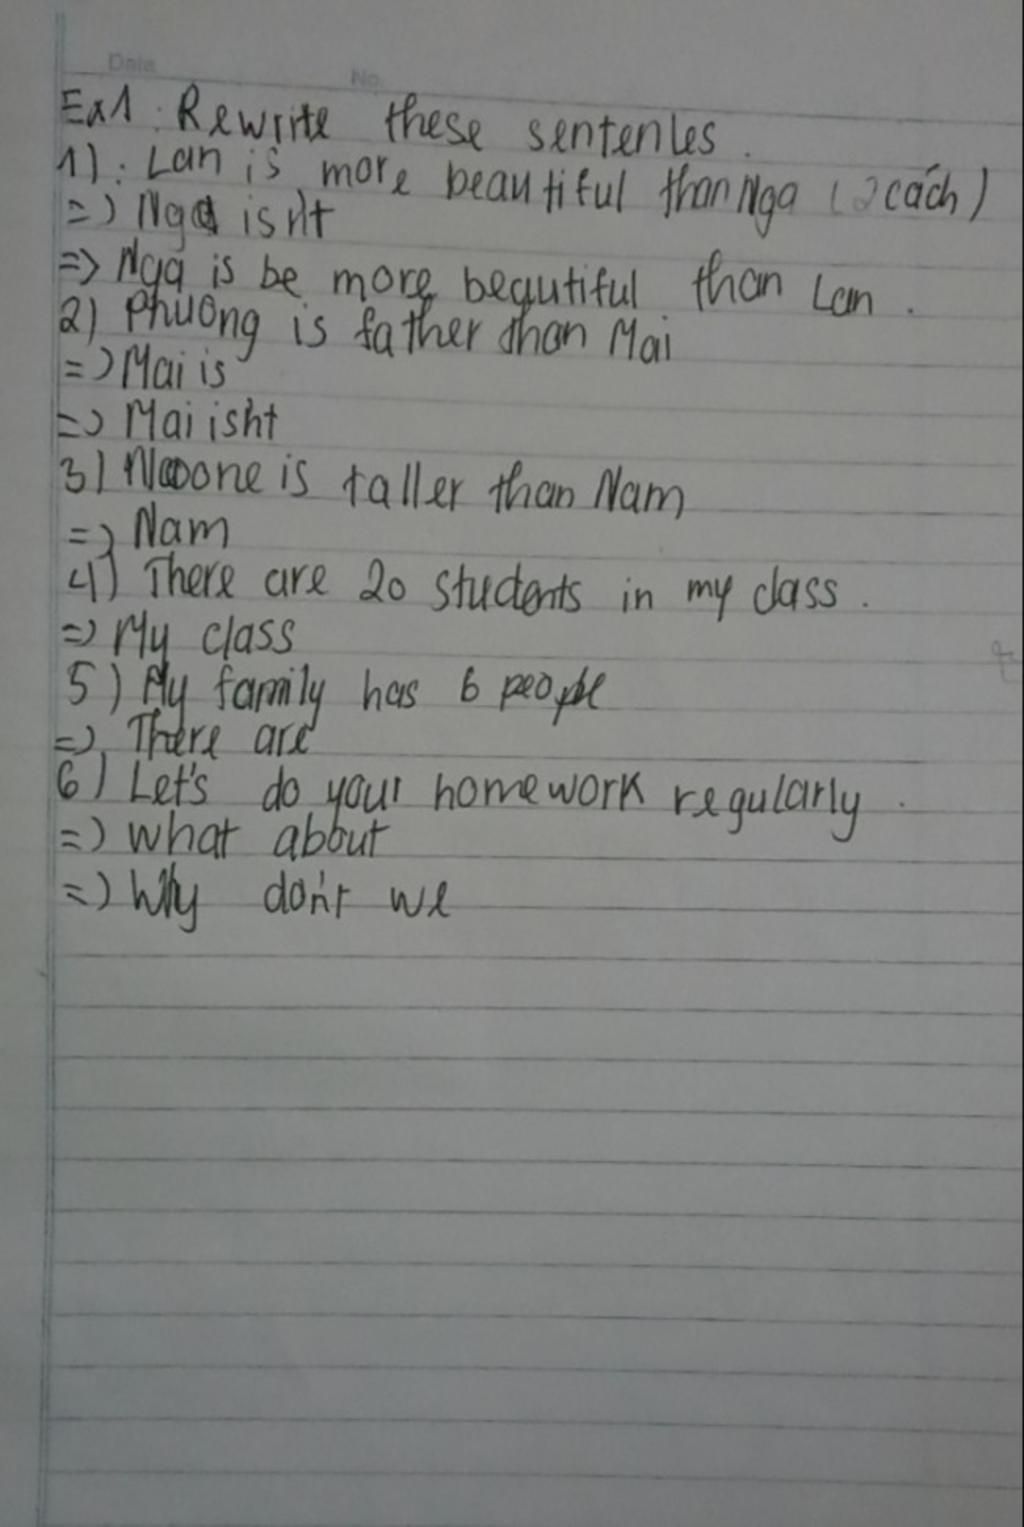 Date No.
Ex1: Rewrite these sentenles.
1): Lan is more beautiful than Nga (2 cách)
=) Nga isn't
=> Nga is be more beautiful than Lan.
2) Phuong is father than Mai
=) Mai is
=) Mai isn't
3) Noone is taller than Nam
=) Nam
4) There are 20 students in my class.
=) My class
5) My family has 6 people
=) There are
6) Let's do your homework regularly.
=) What about
=) Why don't we